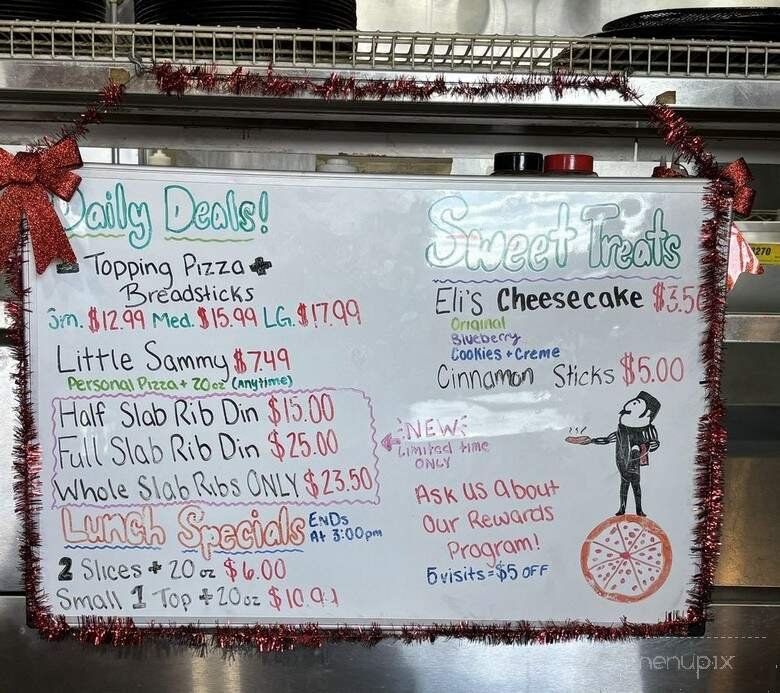 Daily Deals!
2 Topping Pizza +
Breadsticks
Sm. $12.99 Med. $15.99 LG. $17.99
Little Sammy $7.49
Personal Pizza + 20oz (Anytime)
Half Slab Rib Din $15.00
Full Slab Rib Din $25.00
Whole Slab Ribs ONLY $23.50
NEW
Limited time
ONLY
Lunch Specials
ENDs
At 3:00pm
2 Slices + 20oz $6.00
Small 1 Top + 20oz
Sweet Treats
Eli's Cheesecake $3.50
Original
Blueberry
Cookies + Creme
Cinnamon Sticks $5.00
Ask us about
Our Rewards
Program!
5 visits = $5 OFF
menupix